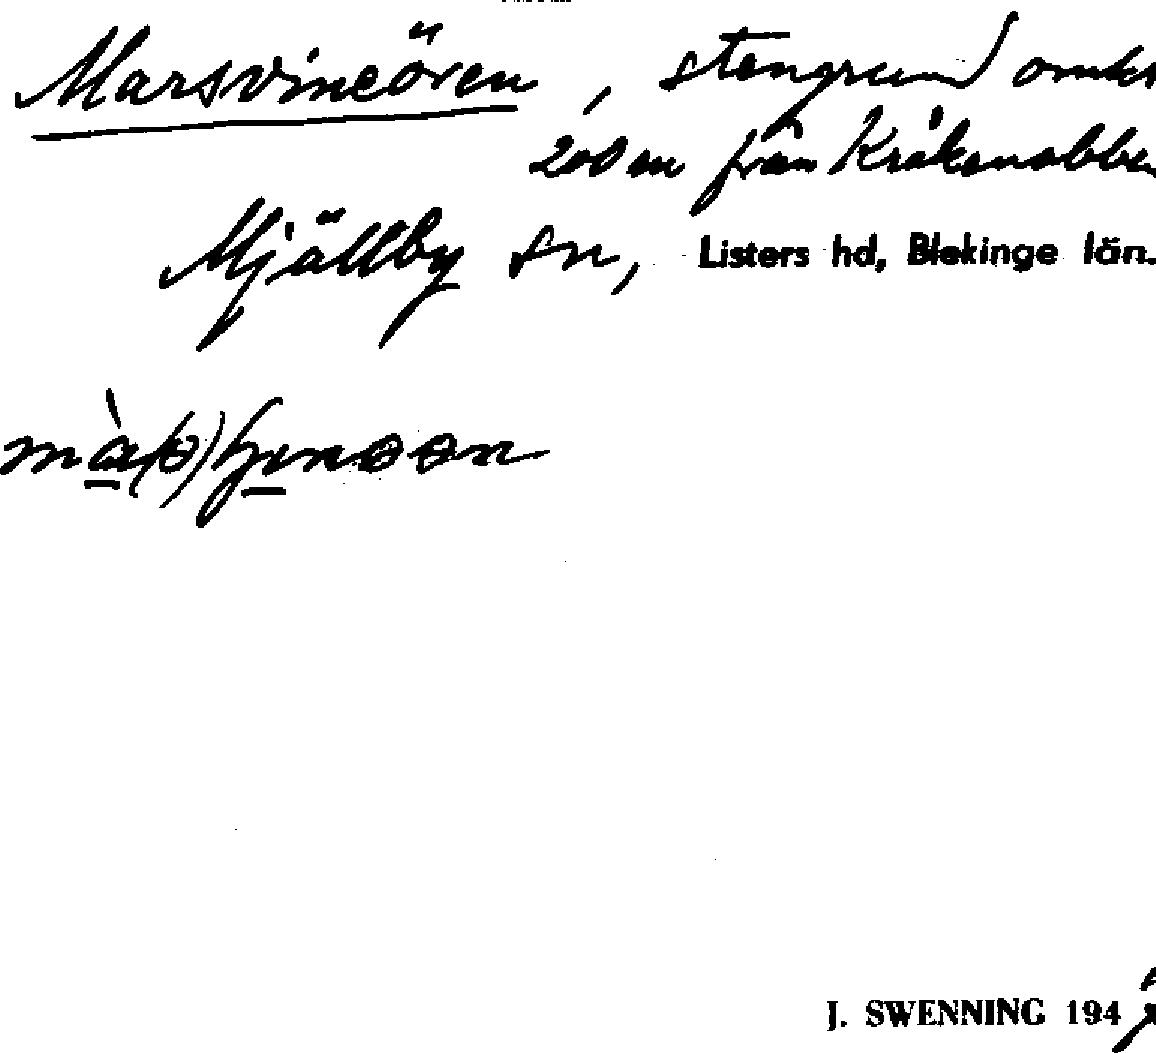 Marsvineören, stengrund omkr
200 m från Kråknabbe
Mjällby sn, Listers hd, Blekinge län.
J. SWENNING 194